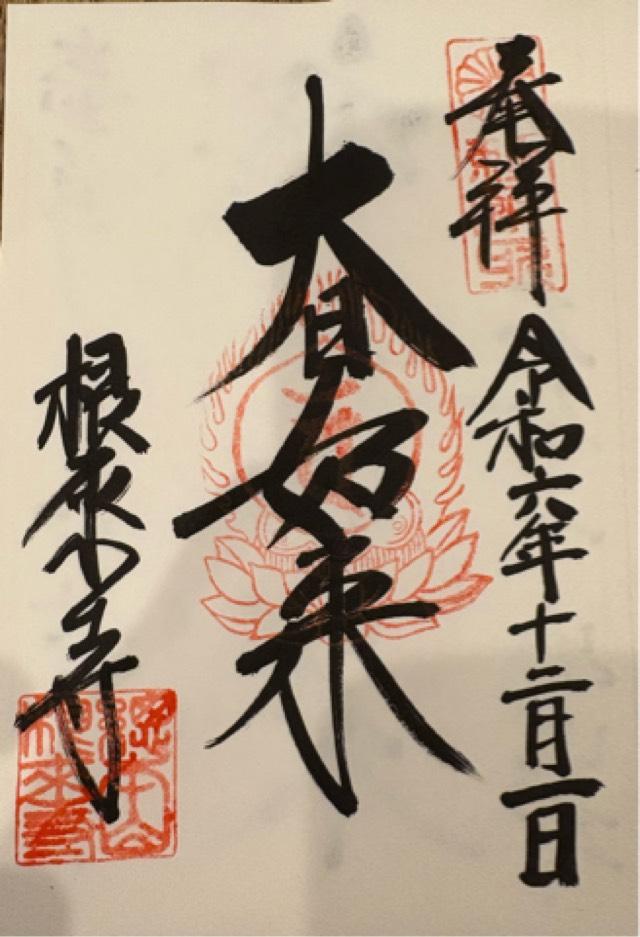 奉拝
令和六年十二月一日
大日如来
根来寺